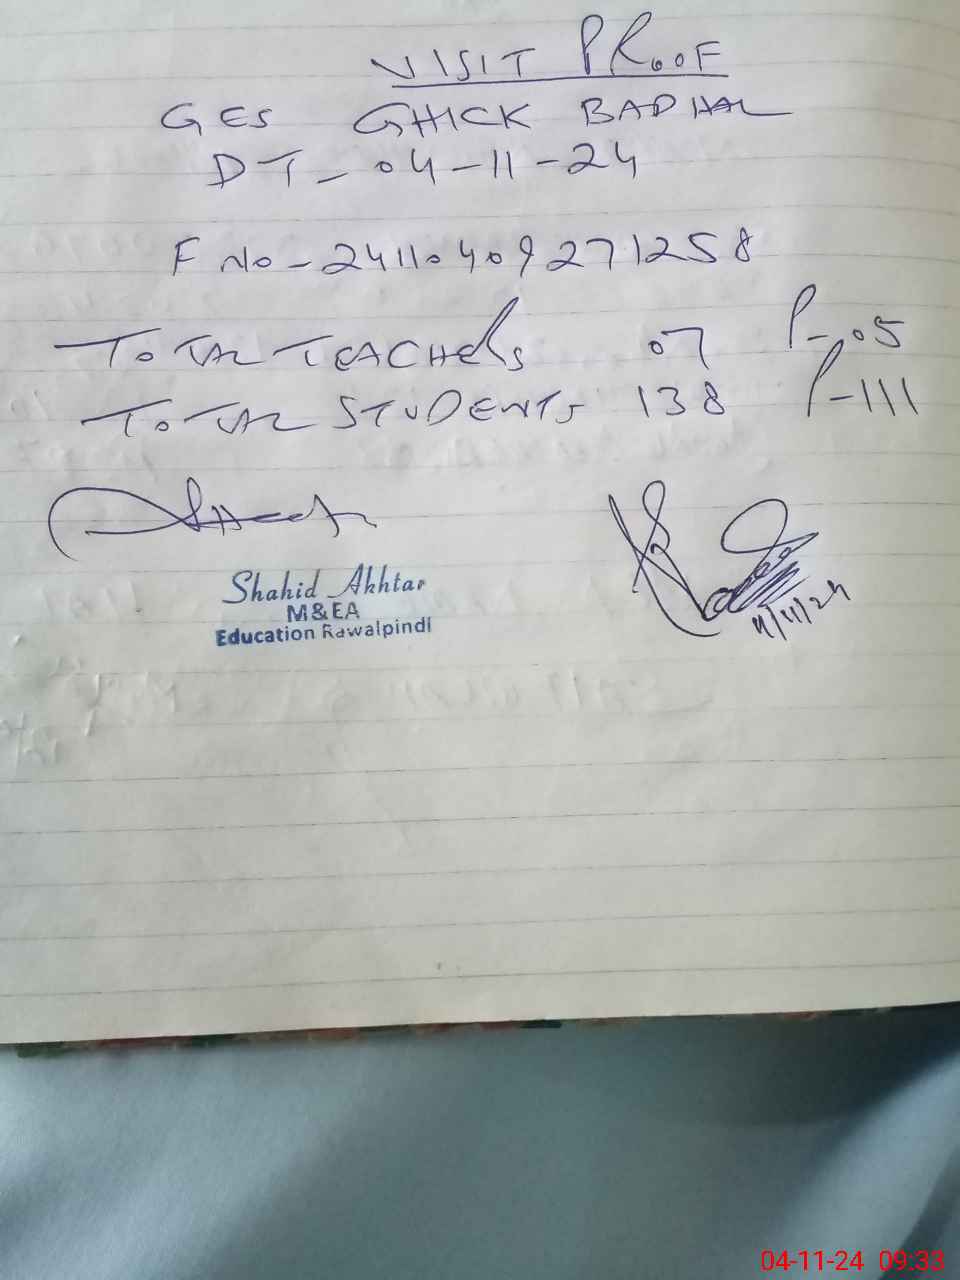 VISIT PROOF
GES GHICK BADHAL
DT - 04-11-24
F No - 24110409271258
TOTAL TEACHERS 07 P-05
TOTAL STUDENTS 138 P-111
Shahid Akhtar
M&EA
Education Rawalpindi
4/11/24
04-11-24 09:33